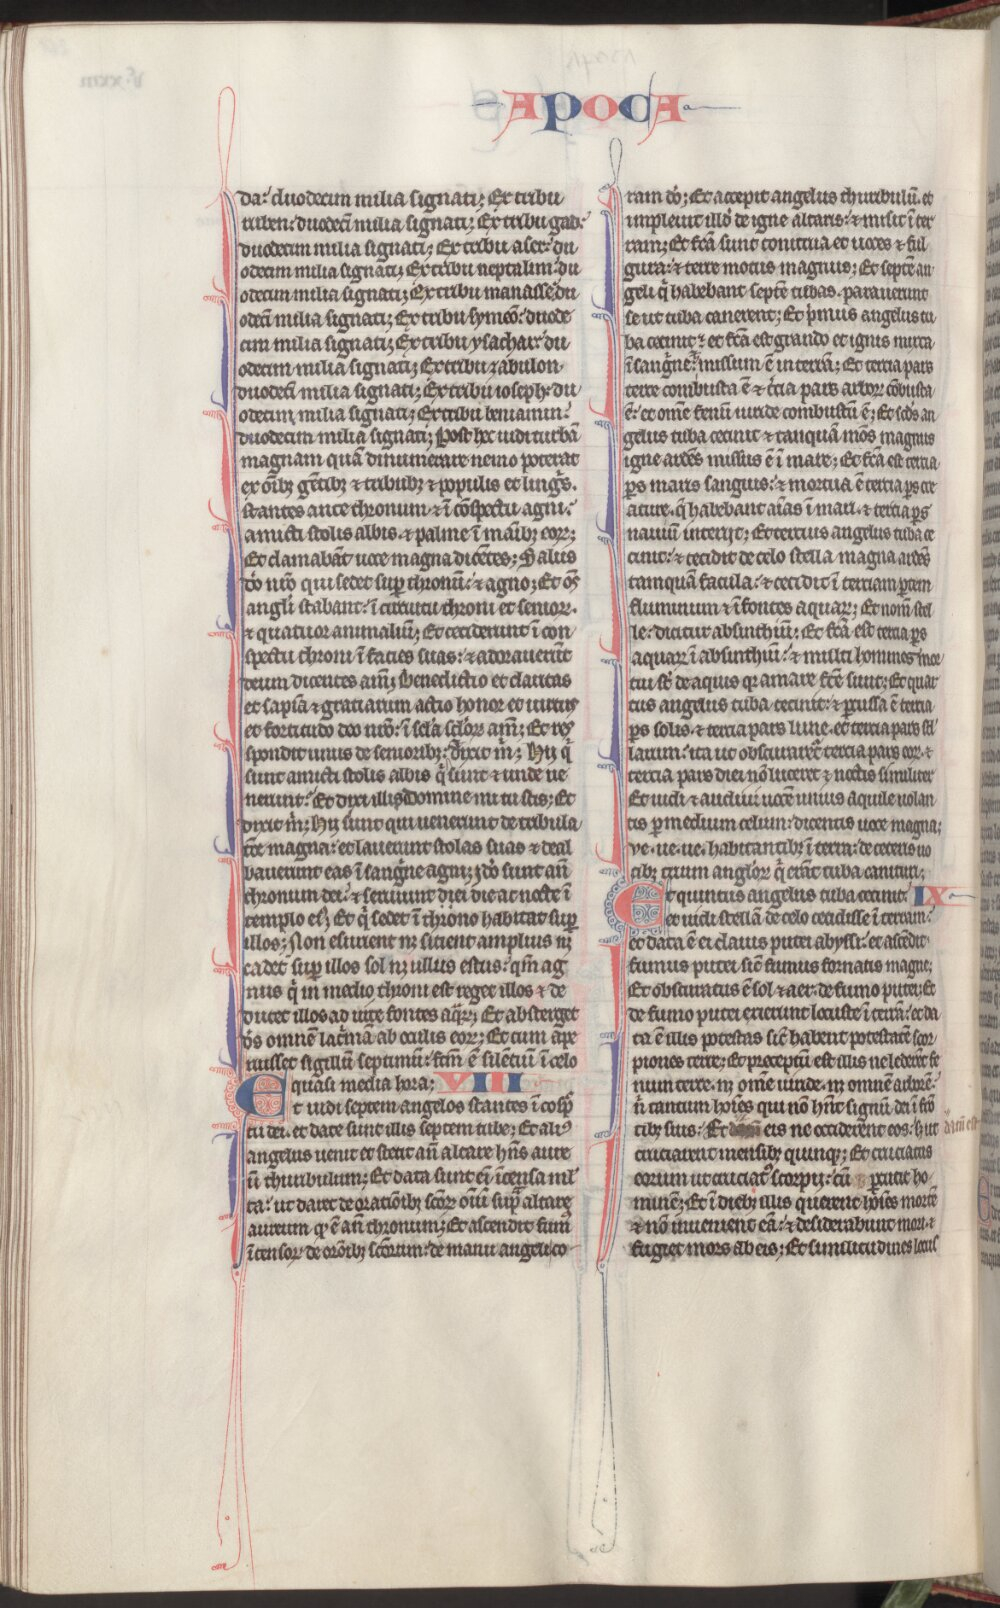 APOCA
da: duodecim milia signati; Ex tribu
ruben: duodecī milia signati; Ex tribu gad:
duodecim milia signati; Ex tribu aser: du
odecim milia signati; Ex tribu neptalim: du
odecim milia signati; Ex tribu manasse: du
odecī milia signati; Ex tribu symeō: duode
cim milia signati; Ex tribu ysachar: du
odecim milia signati; Ex tribu zabulon
duodecī milia signati; Ex tribu ioseph: du
odecim milia signati; Ex tribu beniamin:
duodecim milia signati; Post hec uidi turbā
magnam quā dinumerare nemo poterat
ex oīb; gētib; ⁊ tribub; ⁊ populis et linguis.
stantes ante thronum ⁊ ī cōspectu agni:
amicti stolis albis ⁊ palme ī maīb; eor;
Et clamabāt uoce magna dicētes; Salus
dō nrō qui sedet sup thronū: ⁊ agno; Et oēs
angli stabant ī circuitu throni et senior.
⁊ quatuor animaliū; Et ceciderunt ī con
spectu throni ī facies suas: ⁊ adorauerūt
deum dicentes am̄; Benedictio et claritas
et sapīa ⁊ gratiarum actio honor et uirtus
et fortitudo deo nrō: ī scl̄a sclōr am̄; Et res
spondit unus de seniorib; dixit m̄; Hij q̄
sunt amicti stolis albis q̄ sunt ⁊ unde ue
nerunt: Et dixi illi Domine mi tu scis; Et
dixit m̄; Hij sunt qui uenerunt de tribula
tōe magna: et lauerunt stolas suas ⁊ deal
bauerunt eas ī sangīe agni; Iō sunt añ
thronum dei: ⁊ seruiunt ei die ac nocte ī
templo ei; Et q̄ sedet ī throno habitat sup
illos; Non esurient n; sitient amplius n;
cadet sup illos sol n; ullus estus: qm̄ ag
nus q̄ in medio throni est reget illos ⁊ de
ducet illos ad uite fontes aq̄r; Et absterget
ds omnē lac̄mā ab oculis eor; Et cum ape
ruisset sigillū septimū: fcm̄ ē silētiū ī celo
quasi media hora; VIII
Et uidi septem angelos stantes ī cōsp̄
tu dei. et date sunt illis septem tube; Et alius
angelus uenit et stetit añ altare hn̄s aure
ū thuribulum; Et data sunt ei īcensa ml
ta: ut daret de orationib; scōr oīū sup̄ altare
aureum q ē añ thronum; Et ascendit fum
īcensor de orōib; scōrum: de manu angeli co
ram dō; Et accepit angelus thuribulū. et
impleuit illō de igne altaris: ⁊ misit ī ter
ram; Et fcā sunt tonitrua et uoces ⁊ ful
gura: ⁊ terre motus magnus; Et septē an
geli q̄ habebant septē tubas. parauerunt
se ut tuba canerent; Et p̄mus angelus tu
ba cecinit: et fcā est grando et ignis mixta
ī sanḡne: missum ē in terrā; Et tercia pars
terre combusta ē ⁊ t̄cia pars arbor cōbusta
ē: et ome fenū uiride combustū ē; Et scds an
gelus tuba cecinit ⁊ tanquā mōs magnus
igne ardēs missus ē ī mare; Et fcā est tercia
ps maris sanguis: ⁊ mortua ē tercia ps cre
ature. q̄ habebant aīas ī mari. ⁊ tercia ps
nauiū interijt; Et tercius angelus tuba ce
cinit: ⁊ cecidit de celo stella magna ardēs
tamquā facula: ⁊ cecidit ī terciam ptem
fluminum ⁊ ī fontes aquar; Et nom̄ stel
le: dicitur absinthiū; Et fcā est tercia ps
aquar ī absinthiū: ⁊ multi homines mor
tui st̄ de aquis qr amare fcē sunt; Et quar
tus angelus tuba cecinit: ⁊ pcussa ē tercia
ps solis. ⁊ tercia pars lune. et tercia pars stel
larum: ita ut obscuraret̄ tercia pars eor. ⁊
tercia pars diei nō luceret ⁊ noctis similiter
Et uidi ⁊ audiui uocē unius aquile uolan
tis p medium celum: dicentis uoce magna;
ve. ue. ue. habitantib; ī terra: de ceteris uo
cib; trium anglōr q̄ erāt tuba canituri;
Et quintus angelus tuba cecinit: IX
et uidi stellā de celo cecidisse ī terram:
et data ē ei clauis putei abyssi: et ascēdit
fumus putei sic̄ fumus fornacis magne;
Et obscuratus ē sol ⁊ aer: de fumo putei; Et
de fumo putei exierunt locuste ī terrā: et da
ta ē illis potestas sic̄ habent potestatē scor
piones terre; Et preceptū est illis ne lederēt fe
num terre. n; ome uiride. n; omnē arborē.
n̄ tantum hoīes qui nō hn̄t signū dei ī frō
tib; suis: Et eis ne occiderent eos: s; ut
cruciarent mensib; quinq;; Et cruciatus
eorum ut cruciat scorpij: cū pcutit ho
minē; Et ī dieb; illis querent hoīes mortē
⁊ nō inuenient eā: ⁊ desiderabunt mori. ⁊
fugiet mors ab eis; Et similitudines locus